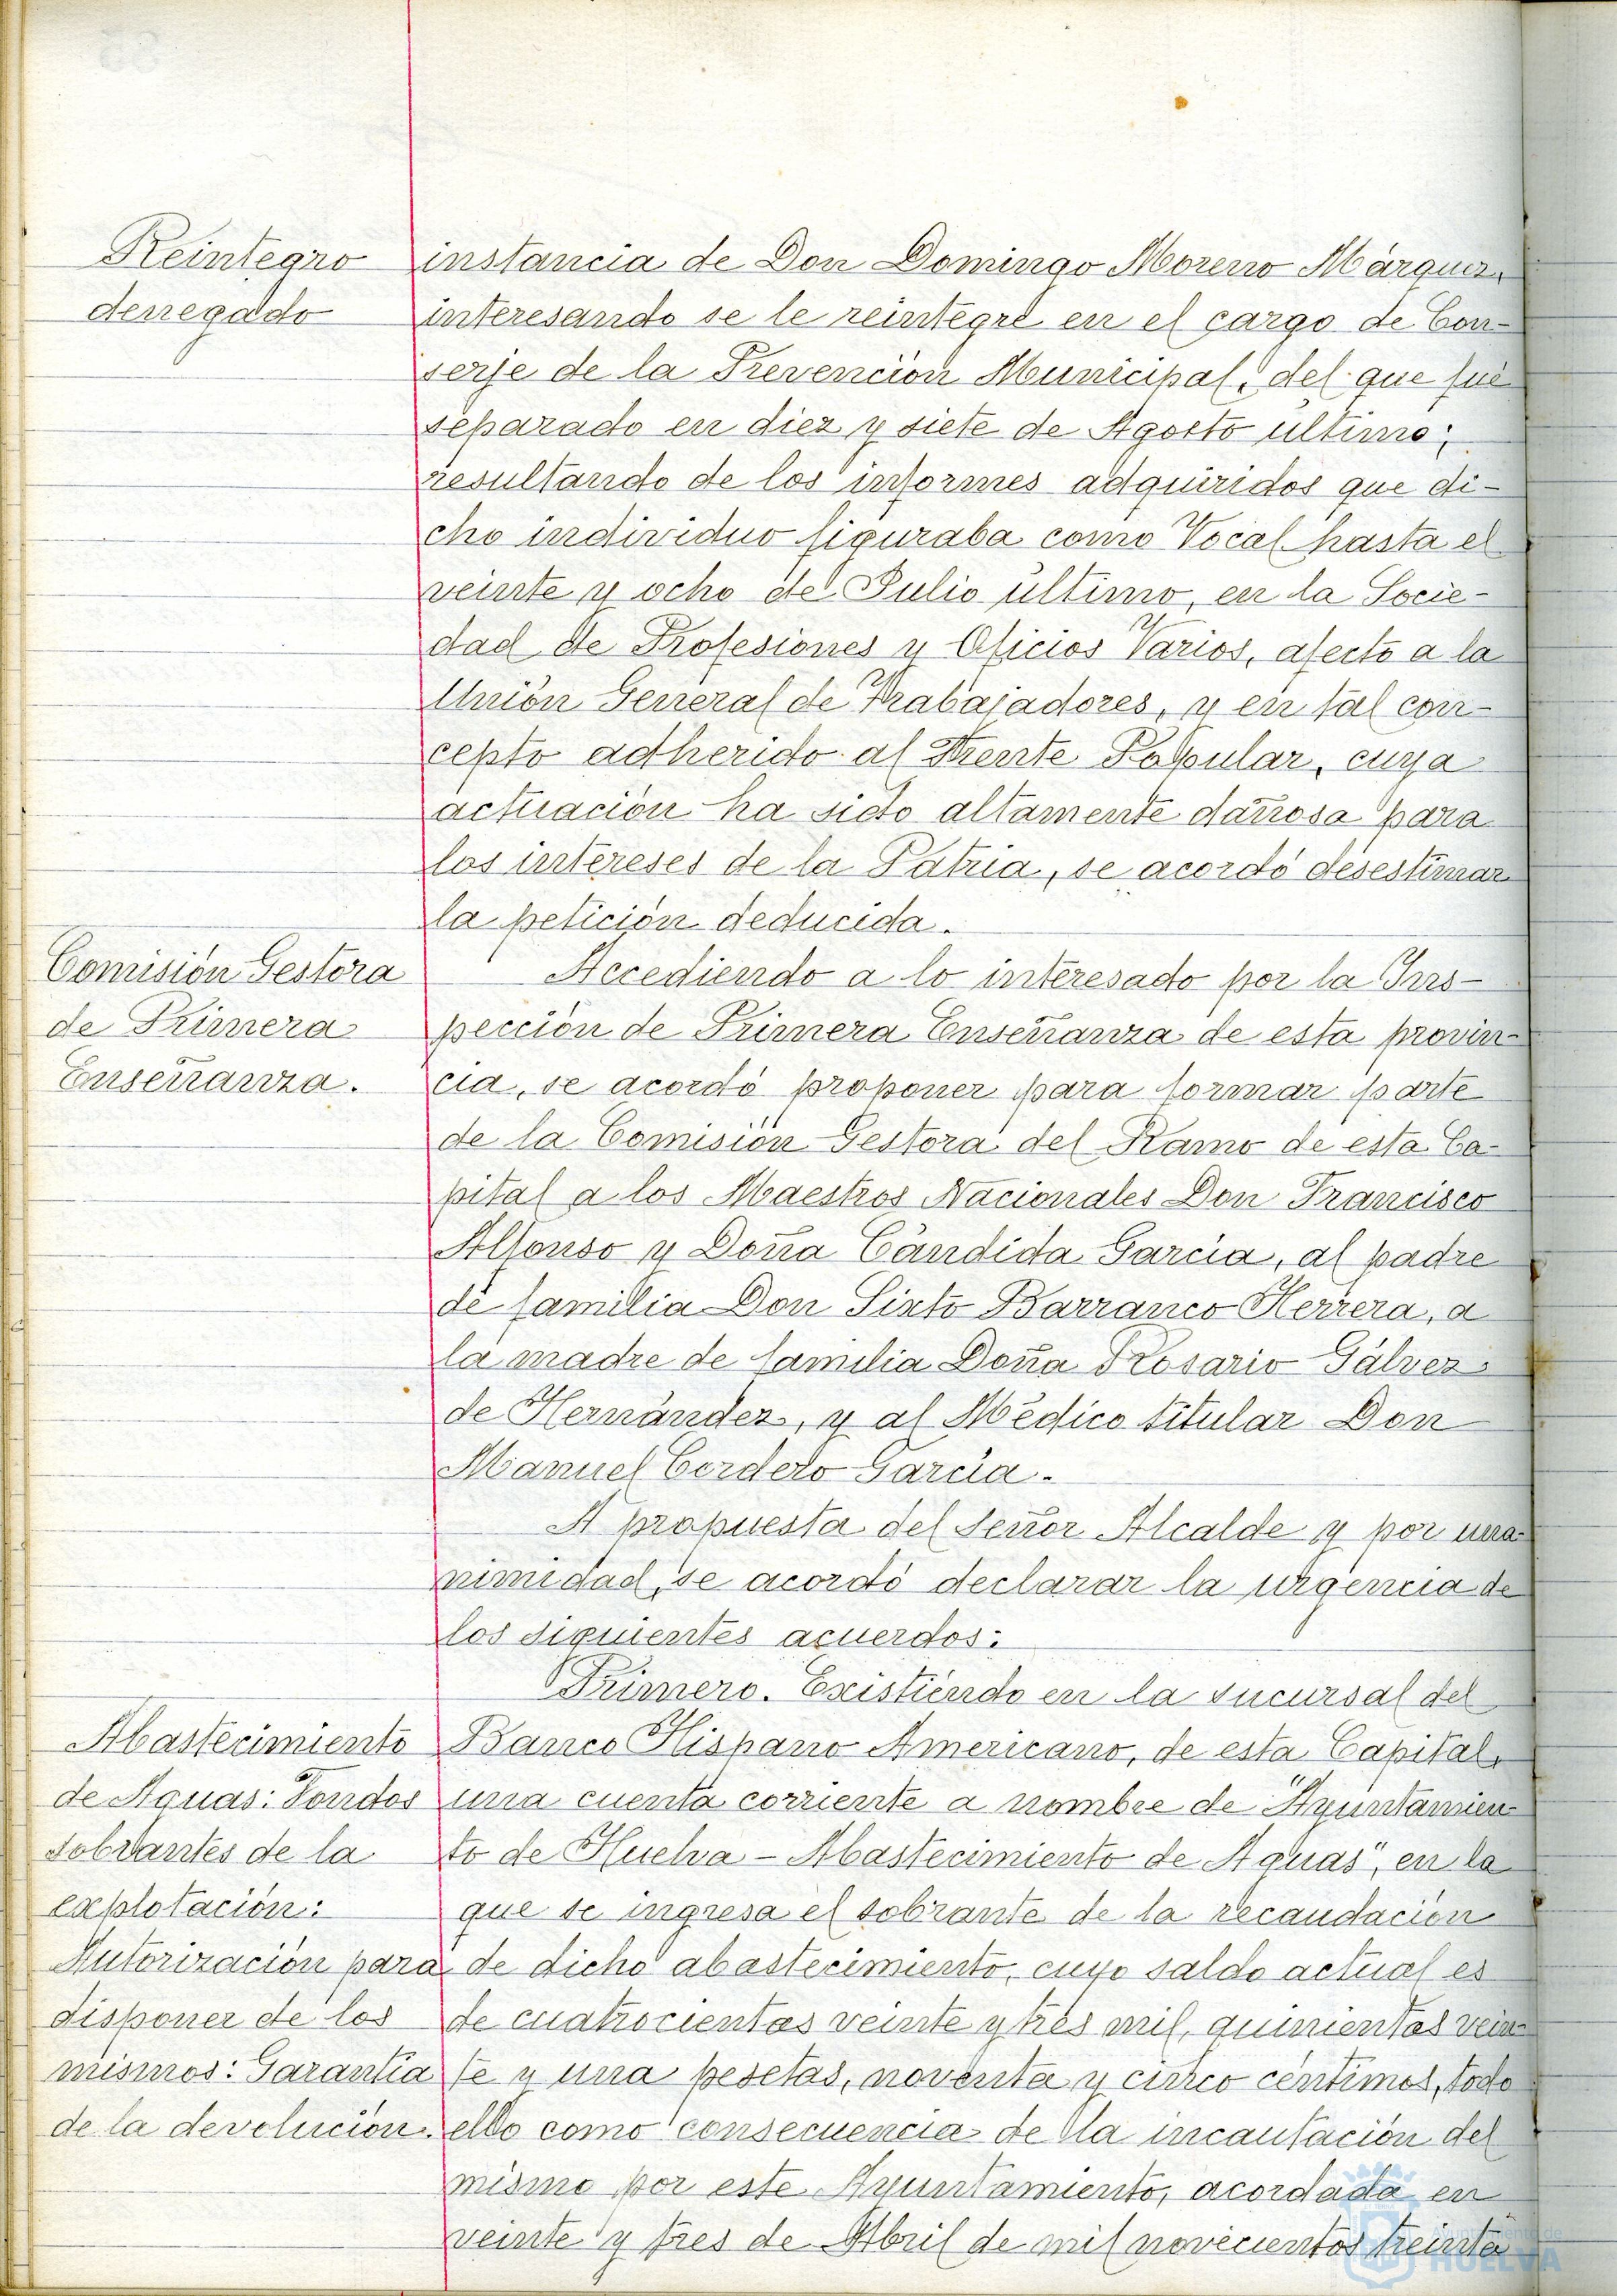 Reintegro
denegado
instancia de Don Domingo Moreno Márquez,
interesando se le reintegre en el cargo de Con-
serje de la Prevención Municipal, del que fué
separado en diez y siete de Agosto último;
resultando de los informes adquiridos que di-
cho individuo figuraba como Vocal hasta el
veinte y ocho de Julio último, en la Socie-
dad de Profesiones y Oficios Varios, afecto a la
Unión General de Trabajadores, y en tal con-
cepto adherido al Frente Popular, cuya
actuación ha sido altamente dañosa para
los intereses de la Patria, se acordó desestimar
la petición deducida.
Comisión Gestora
de Primera
Enseñanza.
Accediendo a lo interesado por la Ins-
pección de Primera Enseñanza de esta provin-
cia, se acordó proponer para formar parte
de la Comisión Gestora del Ramo de esta Ca-
pital a los Maestros Nacionales Don Francisco
Alfonso y Doña Cándida García, al padre
de familia Don Sixto Barranco Herrera, a
la madre de familia Doña Rosario Gálvez
de Hernández, y al Médico titular Don
Manuel Cordero García.
A propuesta del Señor Alcalde y por una-
nimidad, se acordó declarar la urgencia de
los siguientes acuerdos:
Primero. Existiendo en la sucursal del
Abastecimiento
de Aguas: Fondos
sobrantes de la
explotación:
Autorización para
disponer de los
mismos: Garantía
de la devolución.
Banco Hispano Americano, de esta Capital,
una cuenta corriente a nombre de "Ayuntamien-
to de Huelva - Abastecimiento de Aguas", en la
que se ingresa el sobrante de la recaudación
de dicho abastecimiento, cuyo saldo actual es
de cuatrocientas veinte y tres mil, quinientas vein-
te y una pesetas, noventa y cinco céntimos, todo
ello como consecuencia de la incautación del
mismo por este Ayuntamiento, acordada en
veinte y tres de Abril de mil novecientos treinta
Ayuntamiento de
HUELVA